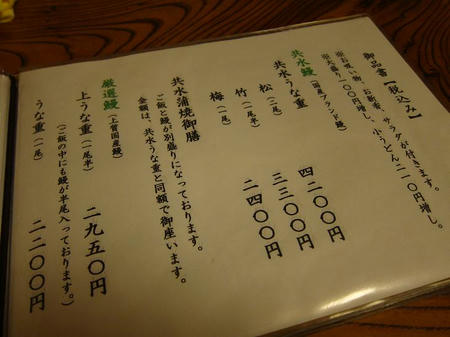 御品書【税込み】
※お吸い物、お新香、サラダが付きます。
※大盛り一〇〇円増し、小うどん二一〇円増し。
共水鰻(国産ブランド鰻)
共水うな重
松(二尾) 四二〇〇円
竹(一尾半) 三三〇〇円
梅(一尾) 二四〇〇円
共水蒲焼御膳
ご飯と鰻が別盛りになっております。
金額は、共水うな重と同額で御座います。
厳選鰻(上質国産鰻)
上うな重(一尾半) 二九五〇円
(ご飯の中にも鰻が半尾入っております。)
うな重(一尾) 二二〇〇円